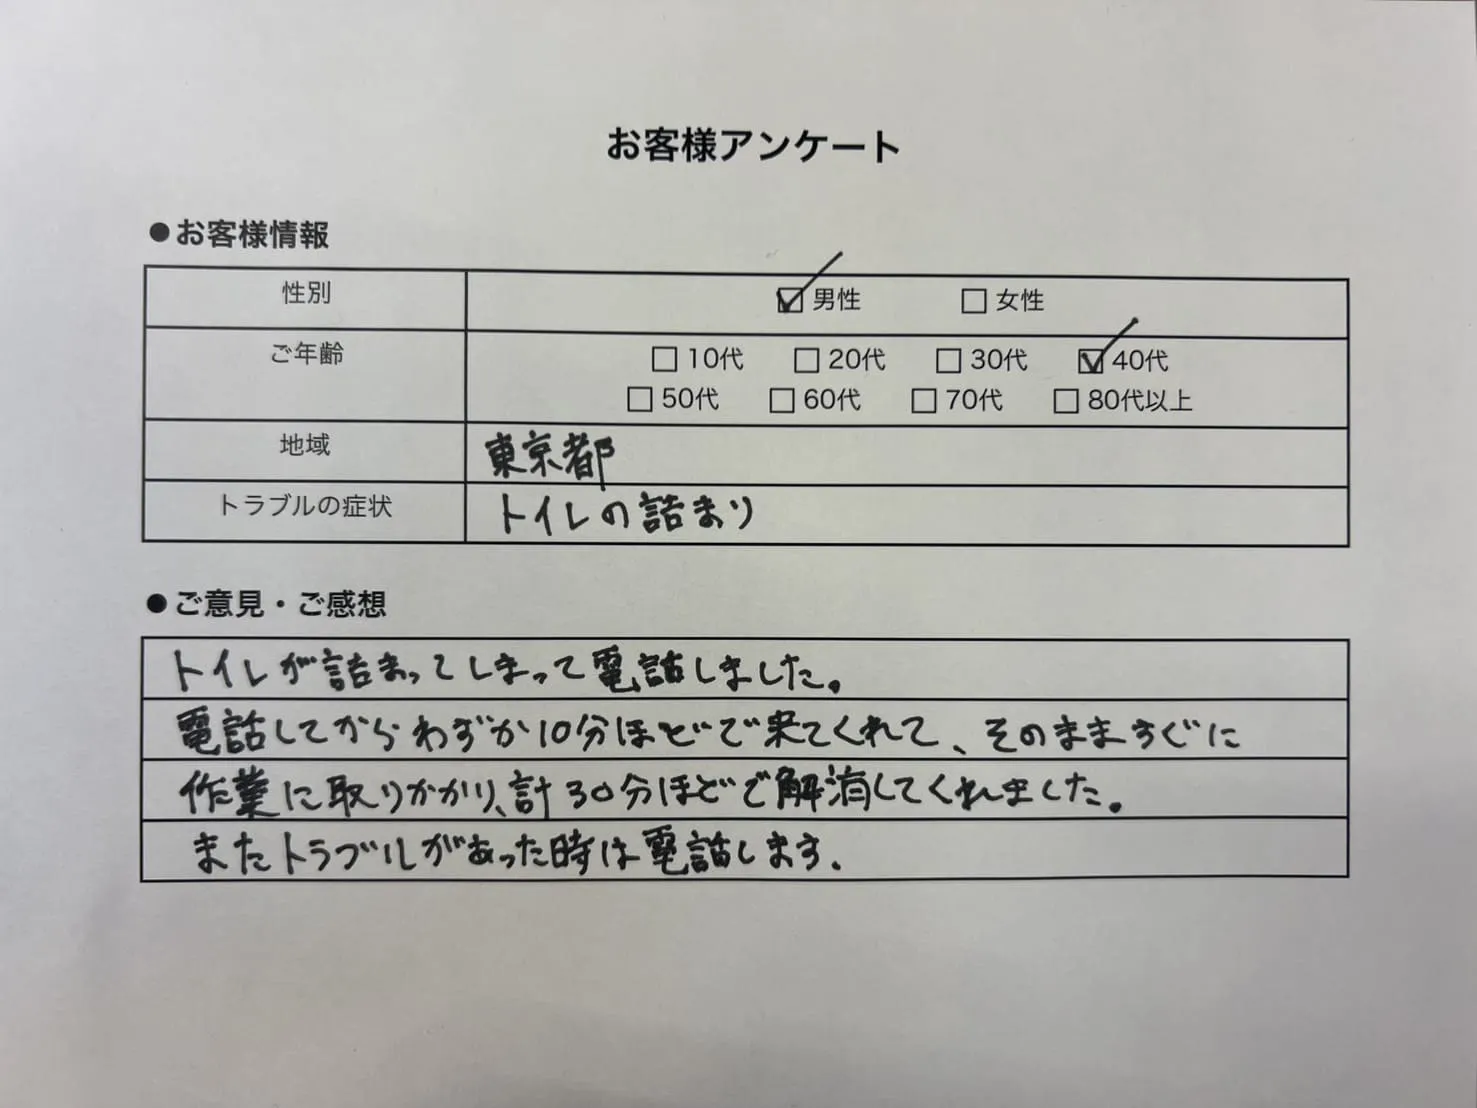 お客様アンケート
●お客様情報
性別 ☑男性 □女性
ご年齢 □10代 □20代 □30代 ☑40代
□50代 □60代 □70代 □80代以上
地域 東京都
トラブルの症状 トイレの詰まり
●ご意見・ご感想
トイレが詰まってしまって電話しました。
電話してからわずか10分ほどで来てくれて、そのまますぐに
作業に取りかかり、計30分ほどで解消してくれました。
またトラブルがあった時は電話します.